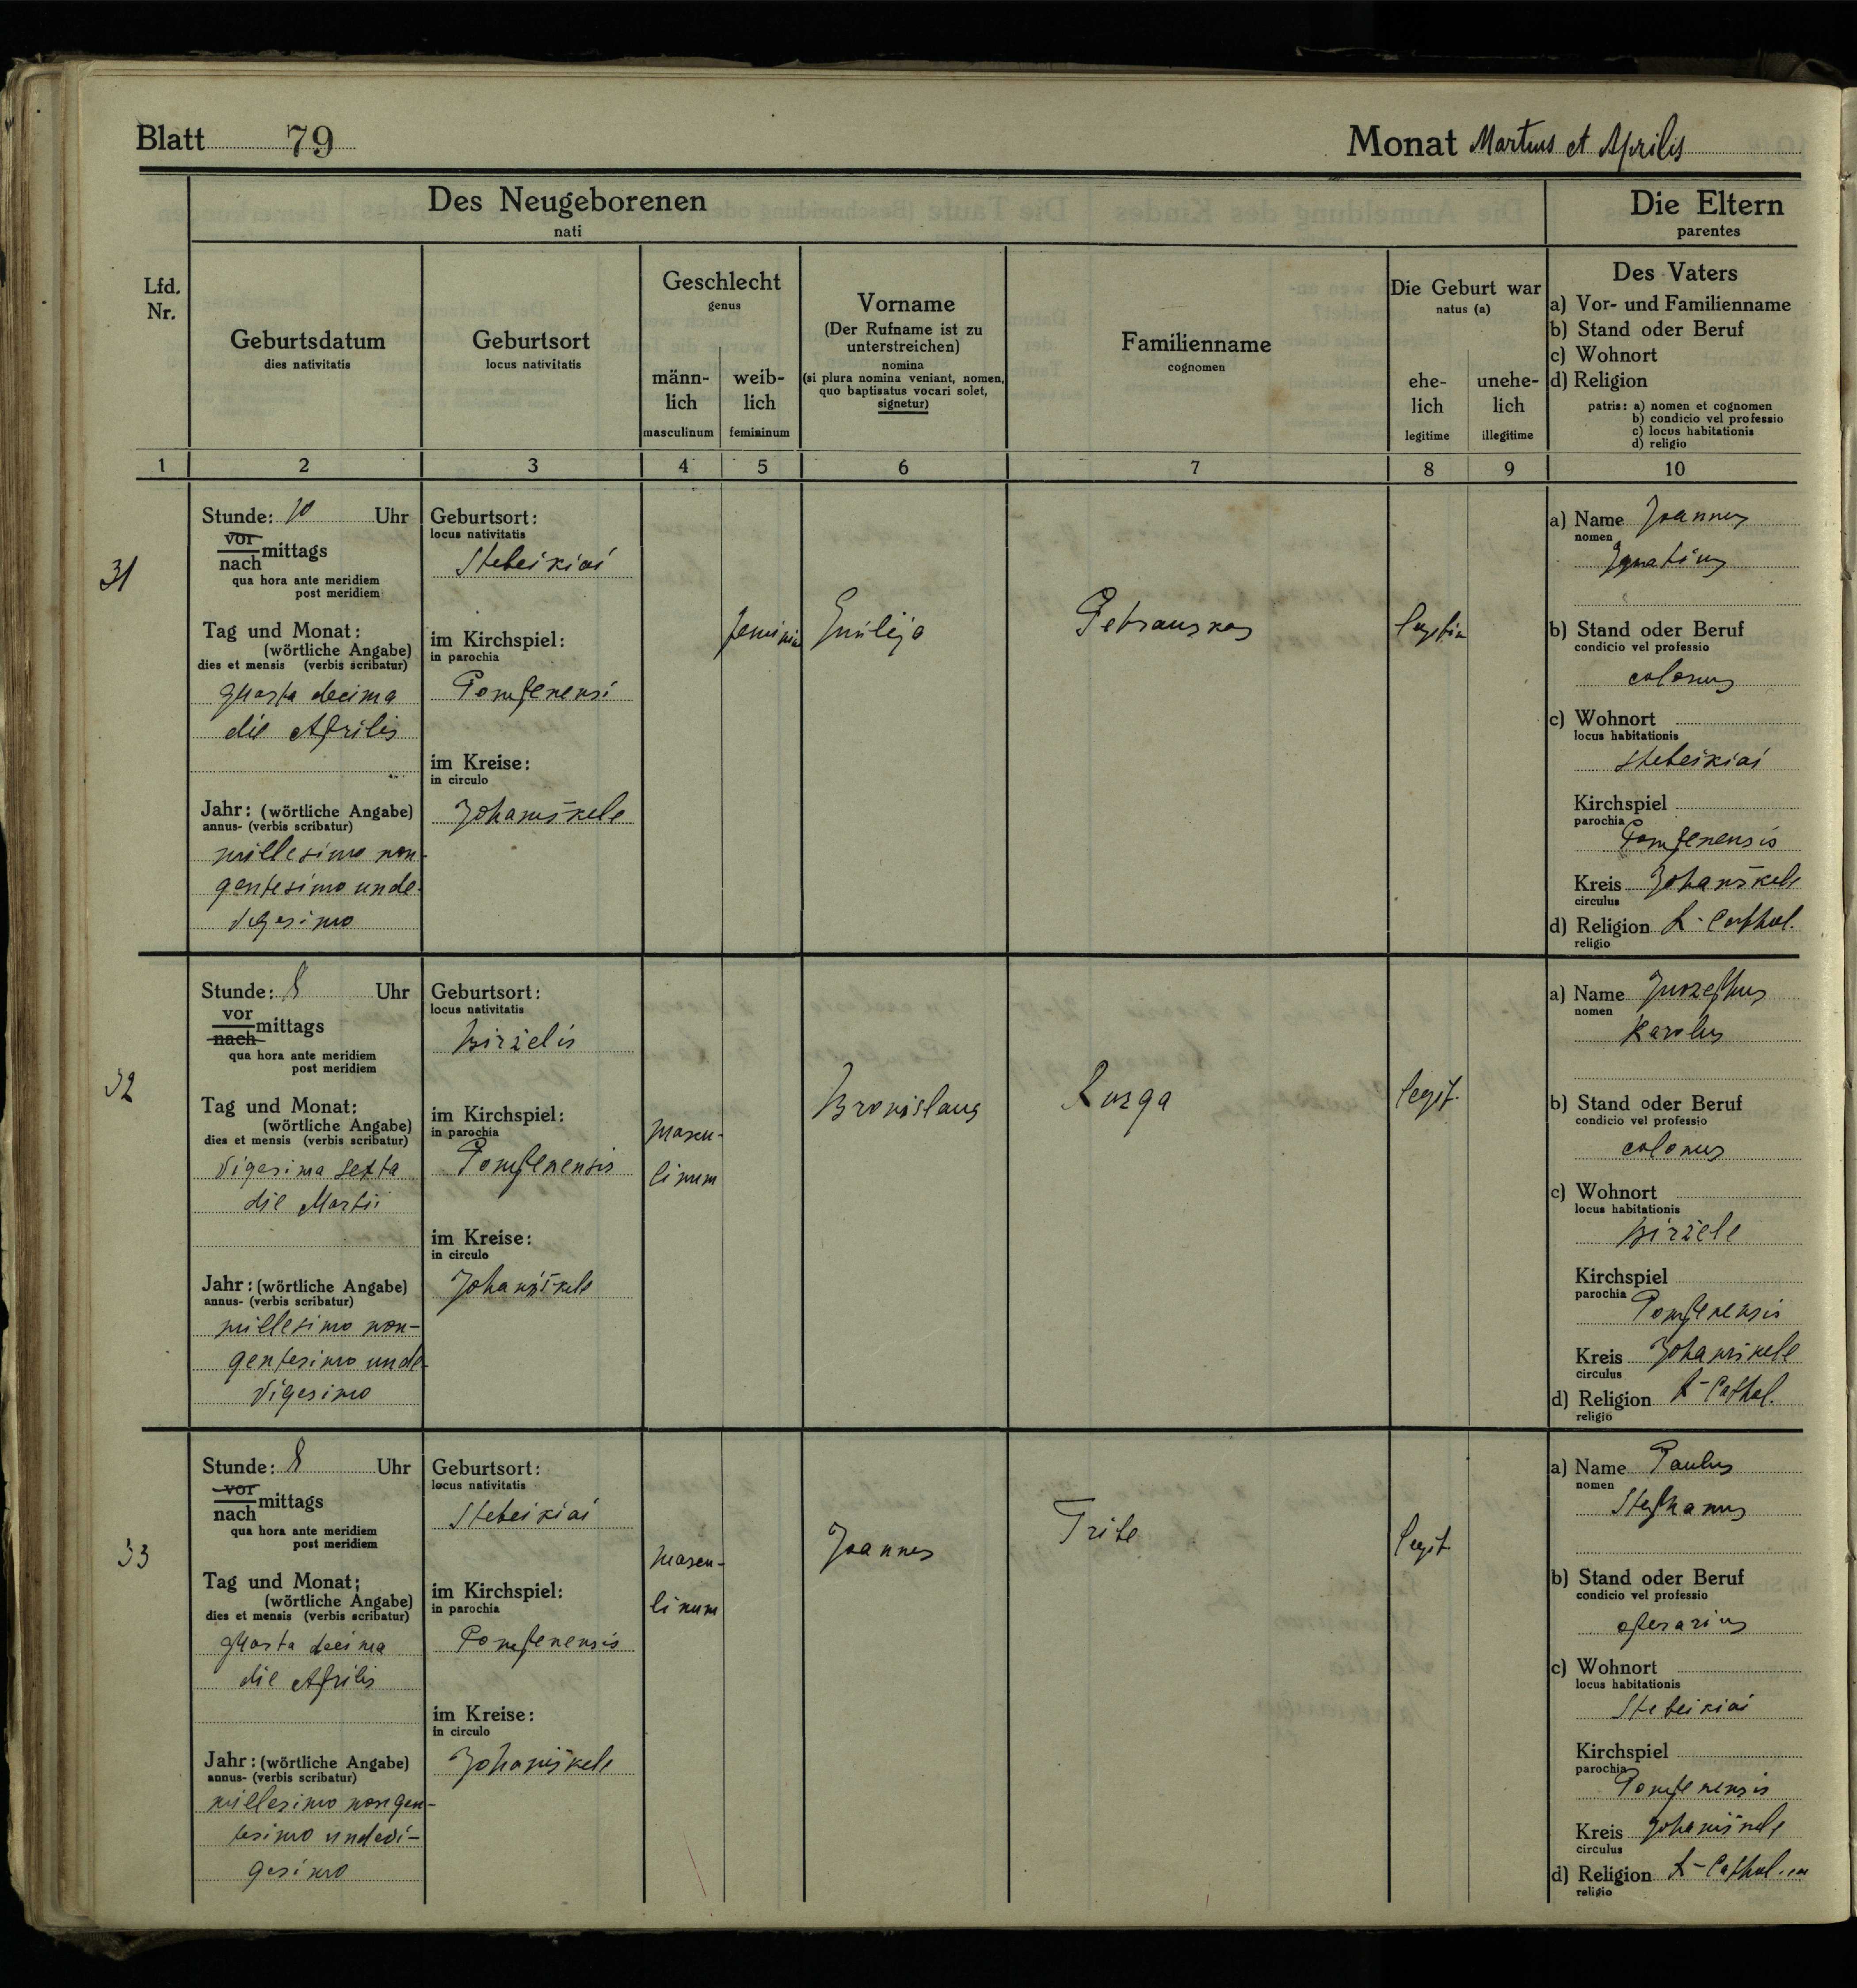 Blatt 79
Monat Martius et Aprilis
Des Neugeborenen
nati
Die Eltern
parentes
Lfd.
Nr.
Geburtsdatum
dies nativitatis
Geburtsort
locus nativitatis
Geschlecht
genus
männ-
lich
masculinum
weib-
lich
femininum
Vorname
(Der Rufname ist zu
unterstreichen)
nomina
(si plura nomina veniant, nomen,
quo baptisatus vocari solet,
signetur)
Familienname
cognomen
Die Geburt war
natus (a)
ehe-
lich
legitime
unehe-
lich
illegitime
Des Vaters
a) Vor- und Familienname
b) Stand oder Beruf
c) Wohnort
d) Religion
patris: a) nomen et cognomen
b) condicio vel professio
c) locus habitationis
d) religio
1 2 3 4 5 6 7 8 9 10
31
Stunde: 10 Uhr
vor
nach mittags
qua hora ante meridiem
post meridiem
Tag und Monat:
(wörtliche Angabe)
dies et mensis (verbis scribatur)
quarta decima
die Aprilis
Jahr: (wörtliche Angabe)
annus- (verbis scribatur)
millesimo non-
gentesimo unde-
vigesimo
Geburtsort:
locus nativitatis
Stebeikiai
im Kirchspiel:
in parochia
Pompenensi
im Kreise:
in circulo
Johaniškele
feminin
Emilija
Petrauskas
legitim
a) Name Joannes
nomen
Ignatius
b) Stand oder Beruf
condicio vel professio
colonus
c) Wohnort
locus habitationis
Stebeikiai
Kirchspiel
parochia
Pompenensis
Kreis Johaniškele
circulus
d) Religion R-Cathol.
religio
32
Stunde: 8 Uhr
vor
nach mittags
qua hora ante meridiem
post meridiem
Tag und Monat:
(wörtliche Angabe)
dies et mensis (verbis scribatur)
vigesima sexta
die Martii
Jahr: (wörtliche Angabe)
annus- (verbis scribatur)
millesimo non-
gentesimo unde-
vigesimo
Geburtsort:
locus nativitatis
Birželis
im Kirchspiel:
in parochia
Pompenensis
im Kreise:
in circulo
Johaniškele
mascu-
linum
Bronislaus
Ruzga
legit.
a) Name Juozephus
nomen
Karolus
b) Stand oder Beruf
condicio vel professio
colonus
c) Wohnort
locus habitationis
Biržele
Kirchspiel
parochia
Pompenensis
Kreis Johaniškele
circulus
d) Religion R-Cathol.
religio
33
Stunde: 8 Uhr
vor
nach mittags
qua hora ante meridiem
post meridiem
Tag und Monat:
(wörtliche Angabe)
dies et mensis (verbis scribatur)
quarta decima
die Aprilis
Jahr: (wörtliche Angabe)
annus- (verbis scribatur)
millesimo nongen-
tesimo undevi-
gesimo
Geburtsort:
locus nativitatis
Stebeikiai
im Kirchspiel:
in parochia
Pompenensis
im Kreise:
in circulo
Johaniškele
mascu-
linum
Joannes
Trite
legit.
a) Name Paulus
nomen
Stephanus
b) Stand oder Beruf
condicio vel professio
operarius
c) Wohnort
locus habitationis
Stebeikiai
Kirchspiel
parochia
Pompenensis
Kreis Johaniškele
circulus
d) Religion R-Cathol.
religio